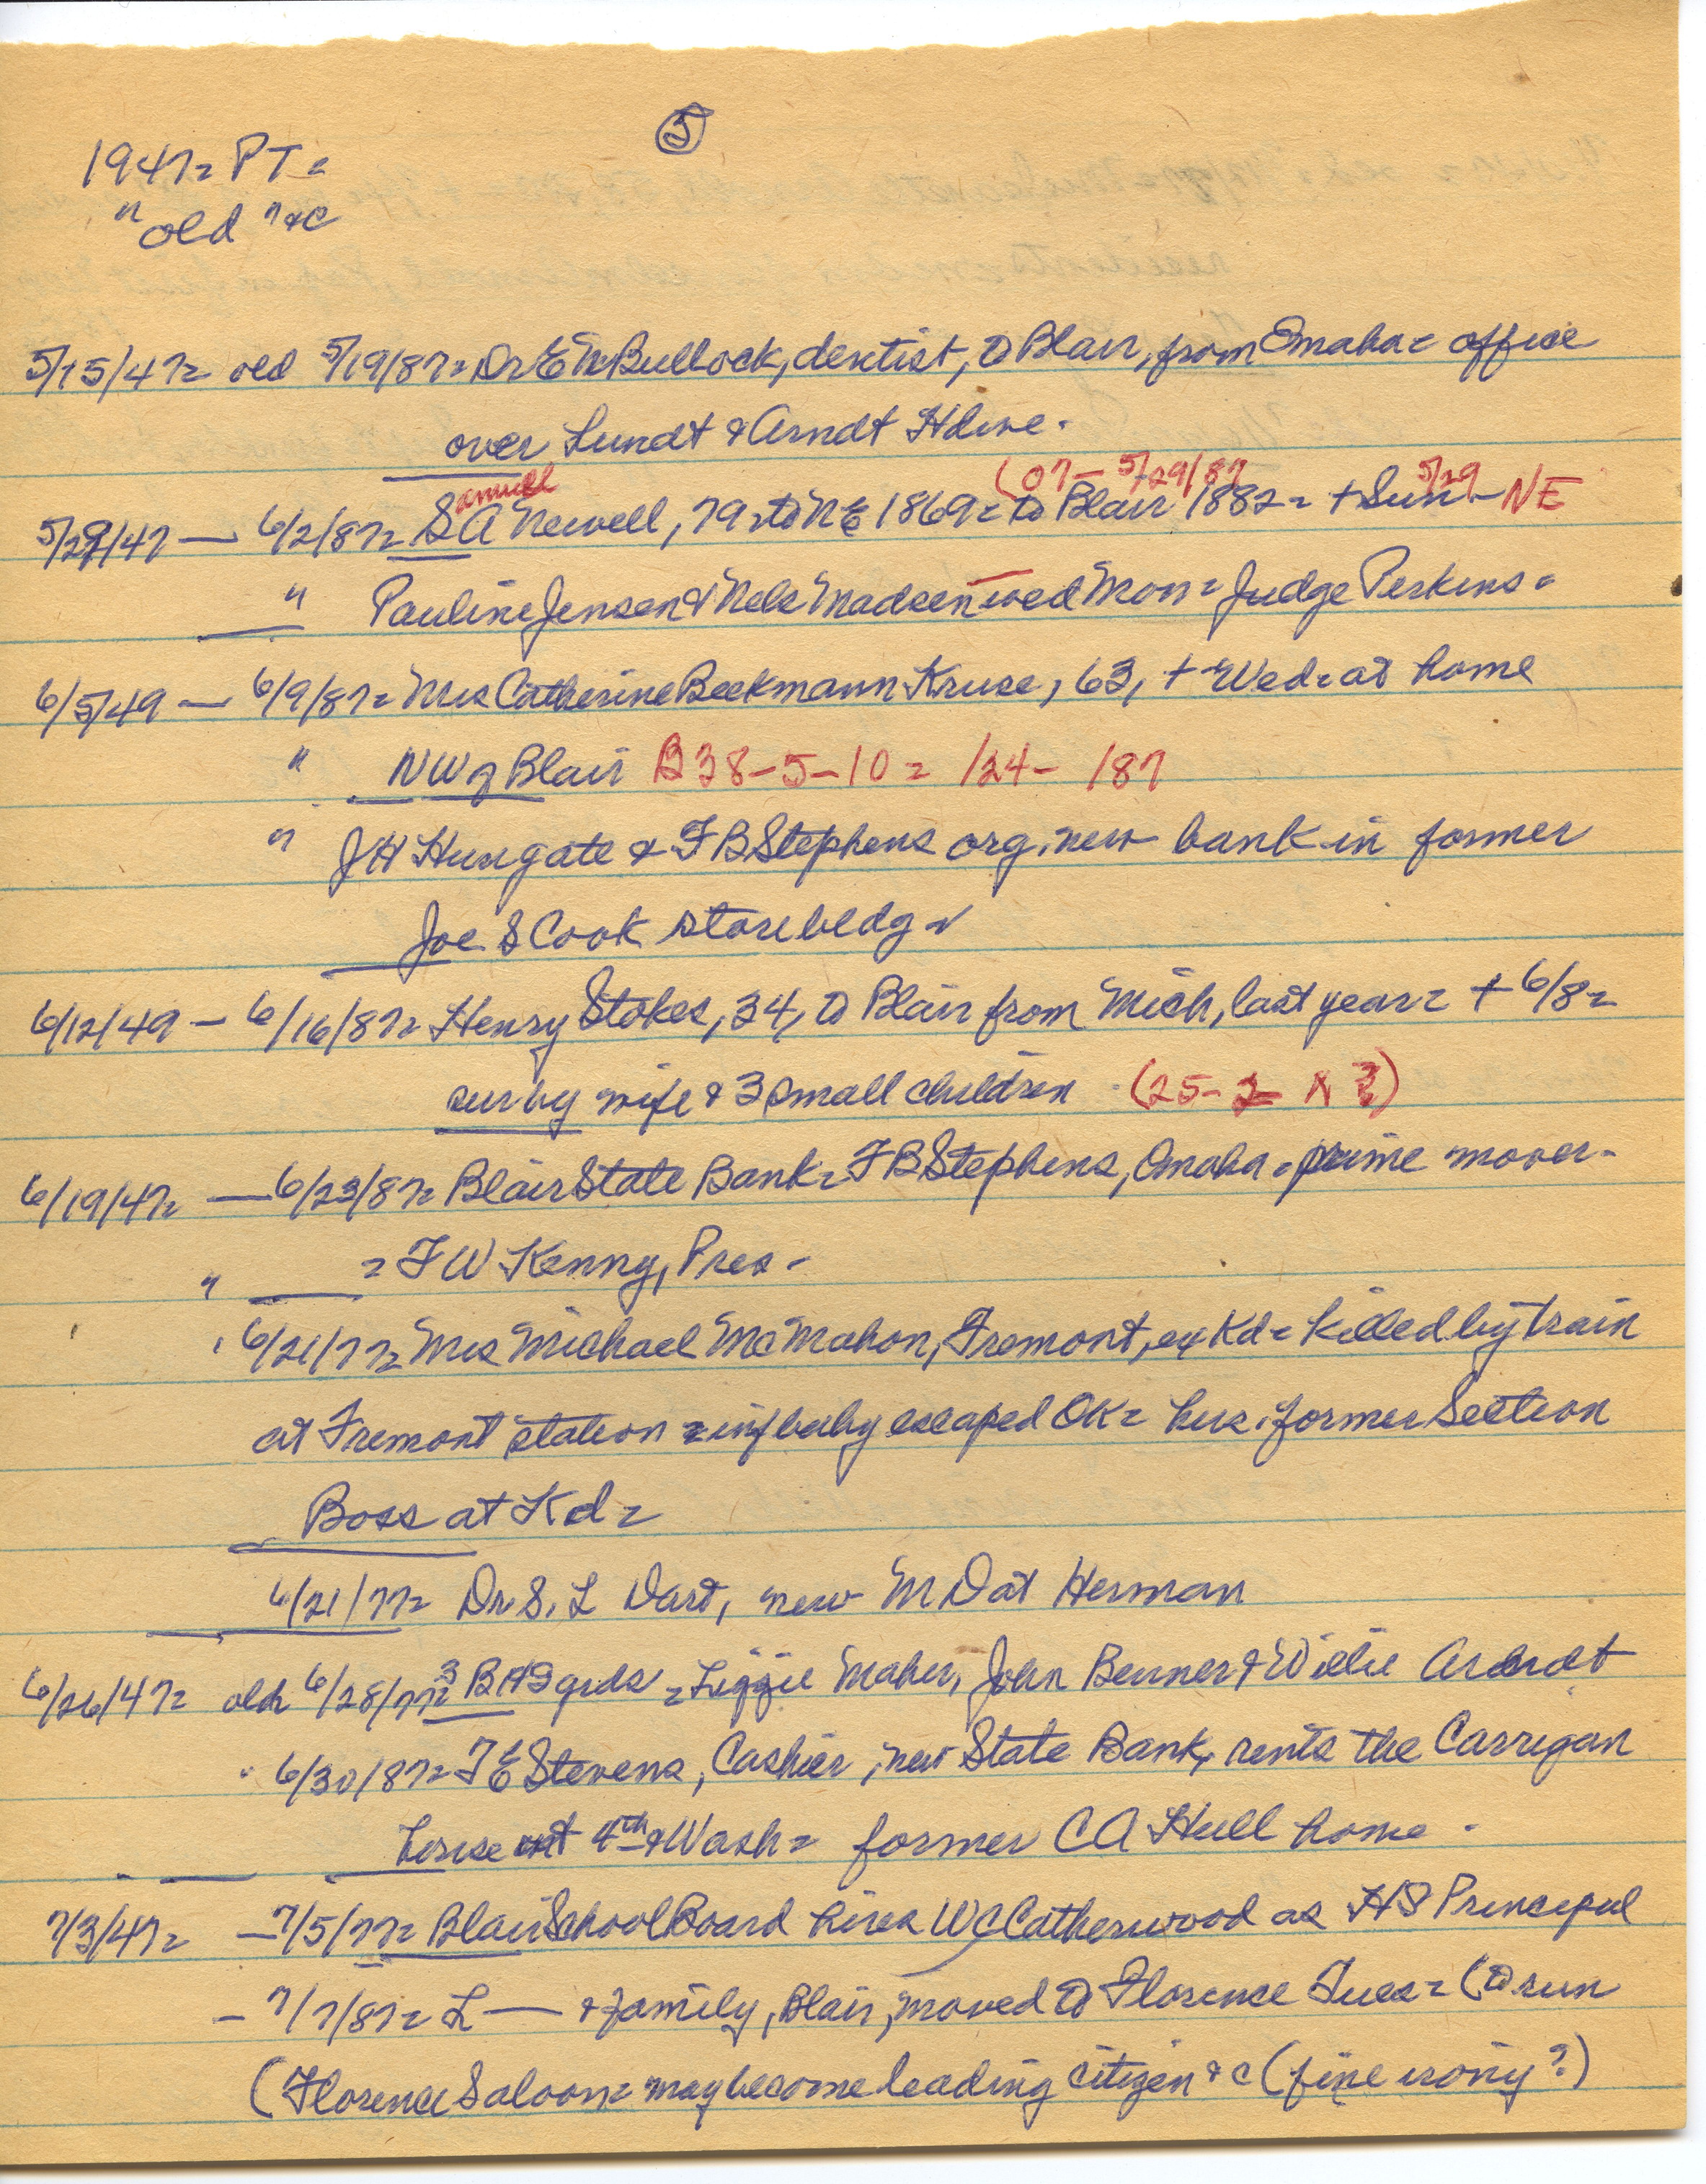 5
1947= PT=
"old" &c
5/15/47= old 5/19/87= Dr E M Bullock, dentist, to Blair, from Omaha= office
over Lundt & Arndt Hdwe.
(07- 5/29/87 5/29
5/29/47 — 6/2/87= Samuel A Newell, 79= to NE 1869= to Blair 1882= + Sun - NE
" Pauline Jensen & Nels Madsen wed Mon= Judge Perkins=
6/5/49 — 6/9/87= Mrs Catherine Beekmann Kruse, 63, + Wed= at home
" NW of Blair B38-5-10= /24- /87
" J H Hungate & F B Stephens org. new bank in former
Joe S Cook store bldg
6/12/49 — 6/16/87= Henry Stokes, 34, to Blair from Mich, last year= + 6/8=
sur by wife & 3 small children (25-2 X ?)
6/19/47= — 6/23/87= Blair State Bank= F B Stephens, Omaha= prime mover-
" = F W Kenny, Pres-
" 6/21/77= Mrs Michael McMahon, Fremont, ex Kd= killed by train
at Fremont station = inf baby escaped OK= hus. former Section
Boss at Kd=
6/21/77= Dr S. L Dart, new M D at Herman
6/26/47= old 6/28/77= 3 BHS grds= Lizzie Maher, John Benner & Willie Arndt
" 6/30/87= F E Stevens, Cashier, new State Bank, rents the Carrigan
house at 4th & Wash= former C A Hull home-
7/3/47= — 7/5/77= Blair School Board hires W C Catherwood as HS Principal
- 7/7/87= L — & family, Blair, moved to Florence Tues= (to run
(Florence Saloon= may become leading citizen &c (fine irony?)